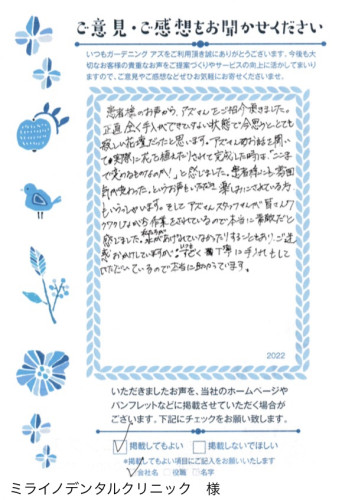 ご意見・ご感想をお聞かせください
いつもガーデニング アズをご利用頂き誠にありがとうございます。今後も大
切なお客様の貴重なお声をご提案づくりやサービスの向上に活かしてまいり
ますので、ご意見やご感想などぜひお気軽にお寄せくださいませ。
患者様のお声から、アズさんをご紹介頂きました。
正直 全く手入れができていない状態で今思うととても
寂しい花壇だったと思います。アズさんのお話を聞い
て実際に花を植えたりされて完成した時は、「ここま
で変わるものなのか!」と感じました。患者様にも雰囲
気が変わった。というお声もいただき 楽しみにされている方
もいらっしゃいます。そして アズさんスタッフさんが皆さん
ワクワクしながら作業をされているので本当に素敵だと
感じました。水があげれていなかったりすることもあり、ご迷
惑おかけしていますが、いつもすごく丁寧に手入れして
いただいているので本当に助かっています。
2022
いただきましたお声を、当社のホームページや
パンフレットなどに掲載させていただく場合が
ございます。下記にチェックをお願い致します。
掲載してもよい 掲載しないでほしい
*掲載してもよい項目にご記入をお願いいたします
会社名 役職 名字
ミライノデンタルクリニック 様